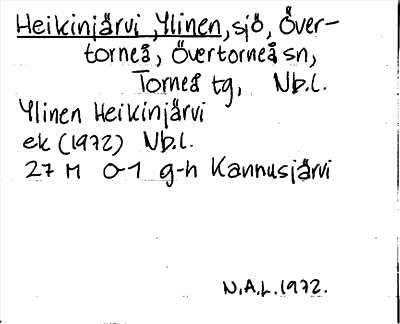 Heikinjärvi, Ylinen, sjö, Över-
torneå, Övertorneå sn,
Torneå tg, Nb.l.
Ylinen Heikinjärvi
ek (1972) Nb.l.
27 M 0-1 g-h Kannusjärvi
N.A.L. 1972.